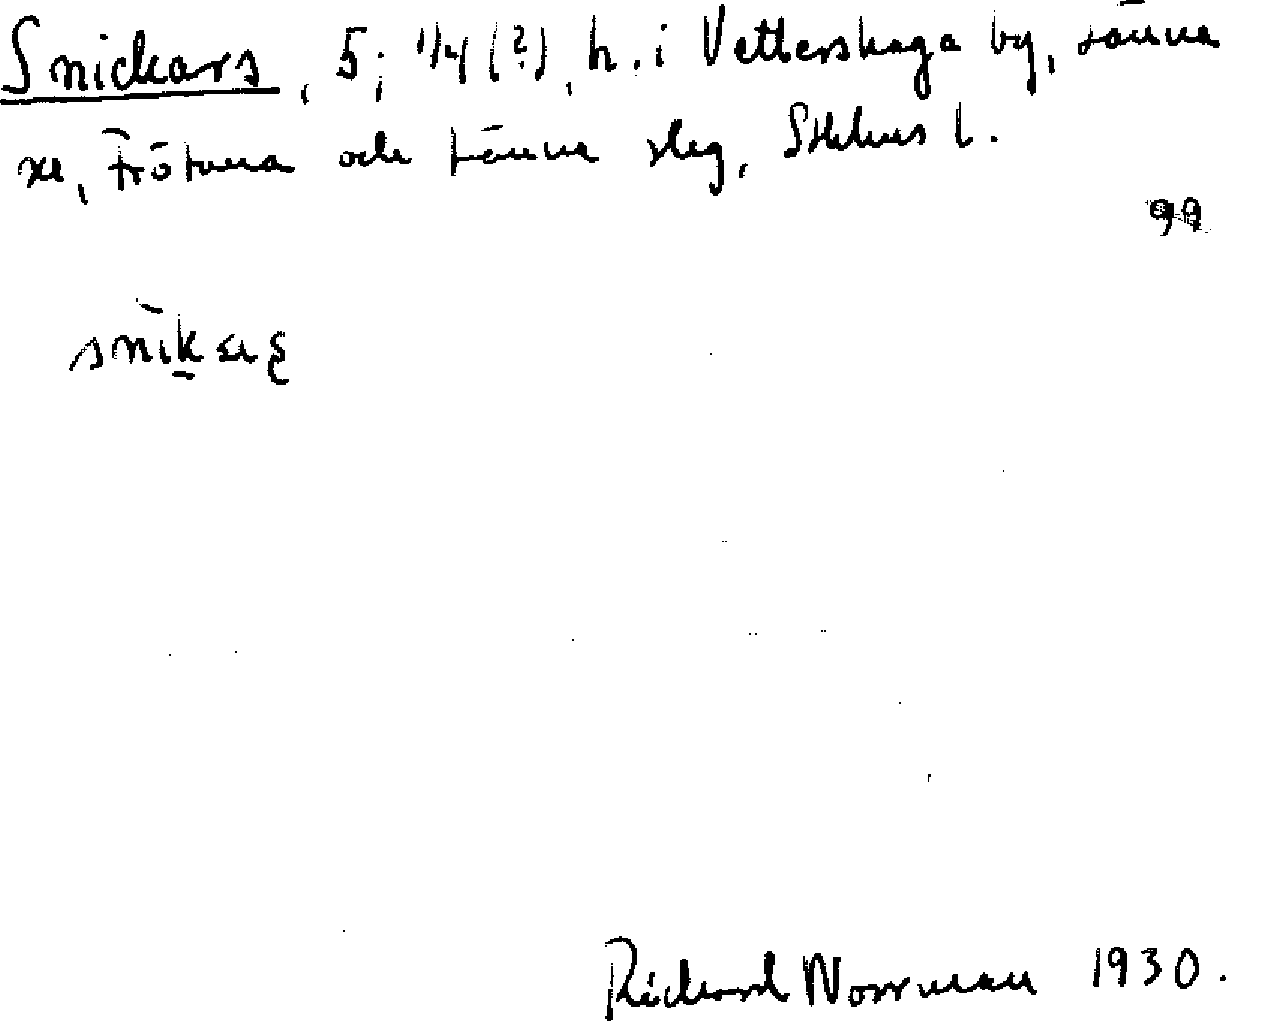 Snickars, 5; 1/4 (?), h. i Vetterskaga by, Länna
sn, Frötuna och Länna slg, Sthlms l.
99
Rickard Norrman 1930.